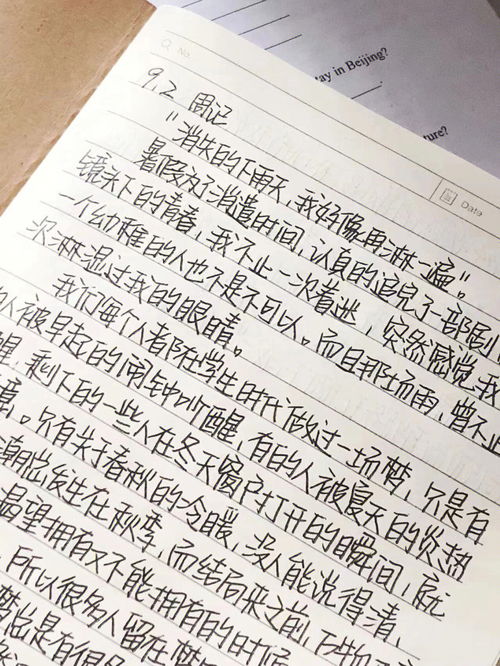 ay in Beijing?
ture?
No.
Data
9.2 周记
"消失的下雨天，我好像再淋一遍"。
暑假为了消遣时间，认真的追完了一部剧
镜头下的青春，我不止一次着迷，突然感觉我
一个幼稚的人也不是不可以。而且那场雨，曾不止
次淋湿过我的眼睛。
我们每个人都在学生时代做过一场梦，只是有
人被早起的闹钟叫醒，有的人被夏天的炎热
醒，剩下的一些人在冬天窗户打开的瞬间，
意。只有关于春秋的冷暖，没人能说得清、
潮说发生在秋季，而结局来之前，
渴望拥有又不能拥有的时候
，所以很多人留在梦
总是有很